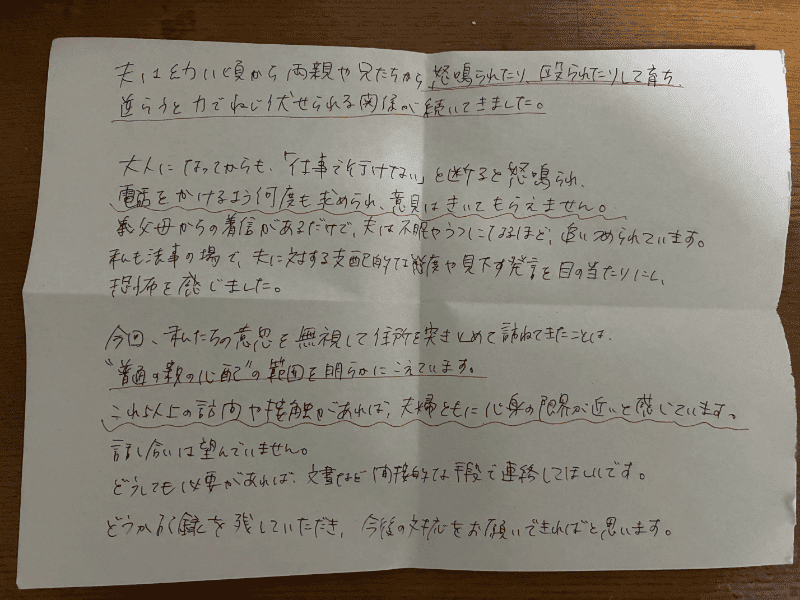 夫は幼い頃から両親や兄たちから、怒鳴られたり、殴られたりして育ち、
逆らうと力でねじ伏せられる関係が続いてきました。
大人になってからも、「仕事で行けない」と断ると怒鳴られ、
電話をかけるよう何度も求められ、意見はきいてもらえません。
義父母からの着信があるだけで、夫は不眠やうつになるほど、追いつめられています。
私も法事の場で、夫に対する支配的な態度や見下す発言を目の当たりにし、
恐怖を感じました。
今回、私たちの意思を無視して住所を突きとめて訪ねてきたことは、
“普通の親の心配”の範囲を明らかにこえています。
これ以上の訪問や接触があれば、夫婦ともに心身の限界が近いと感じています。
話し合いは望んでいません。
どうしても必要があれば、文書など間接的な手段で連絡してほしいです。
どうか記録を残していただき、今後の対応をお願いできればと思います。